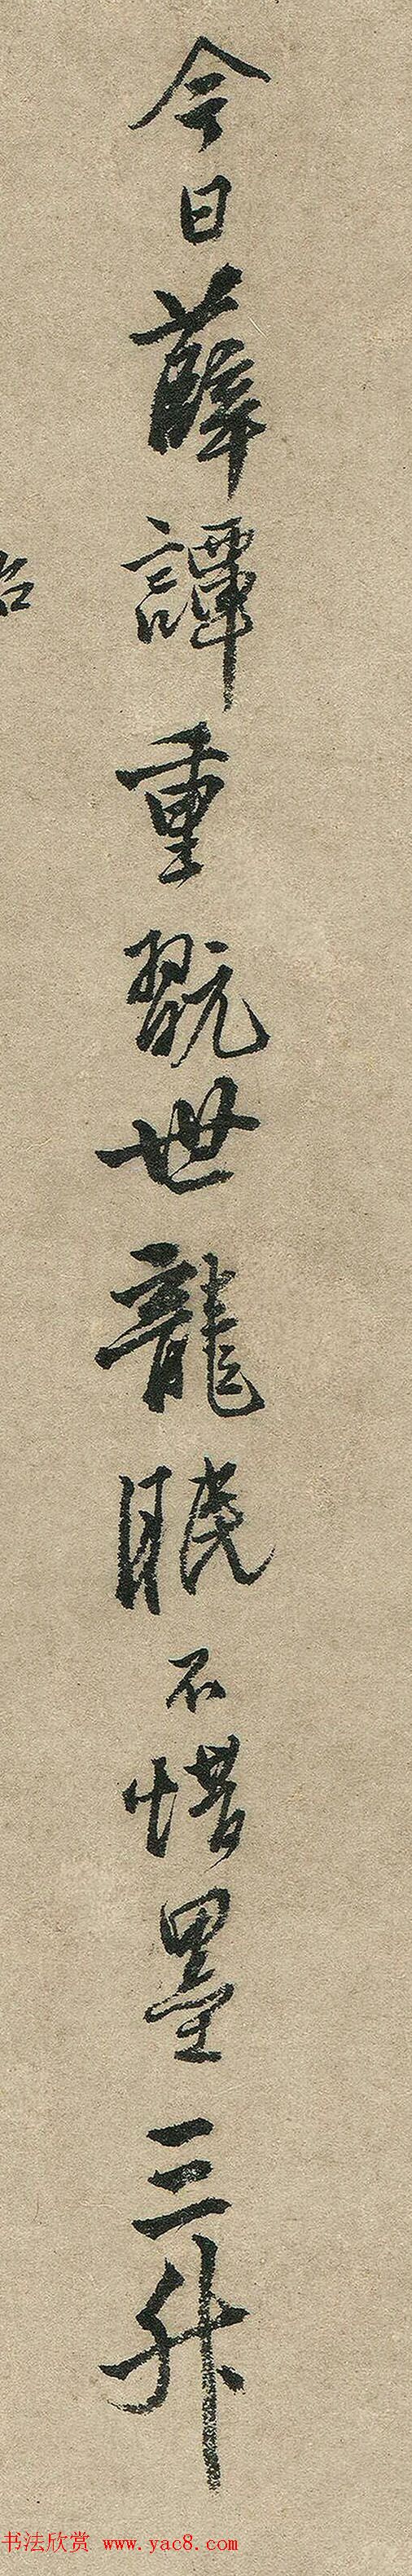 今日薛譚重翫世龍眠不惜墨三升
書法欣赏 www.yac8.com